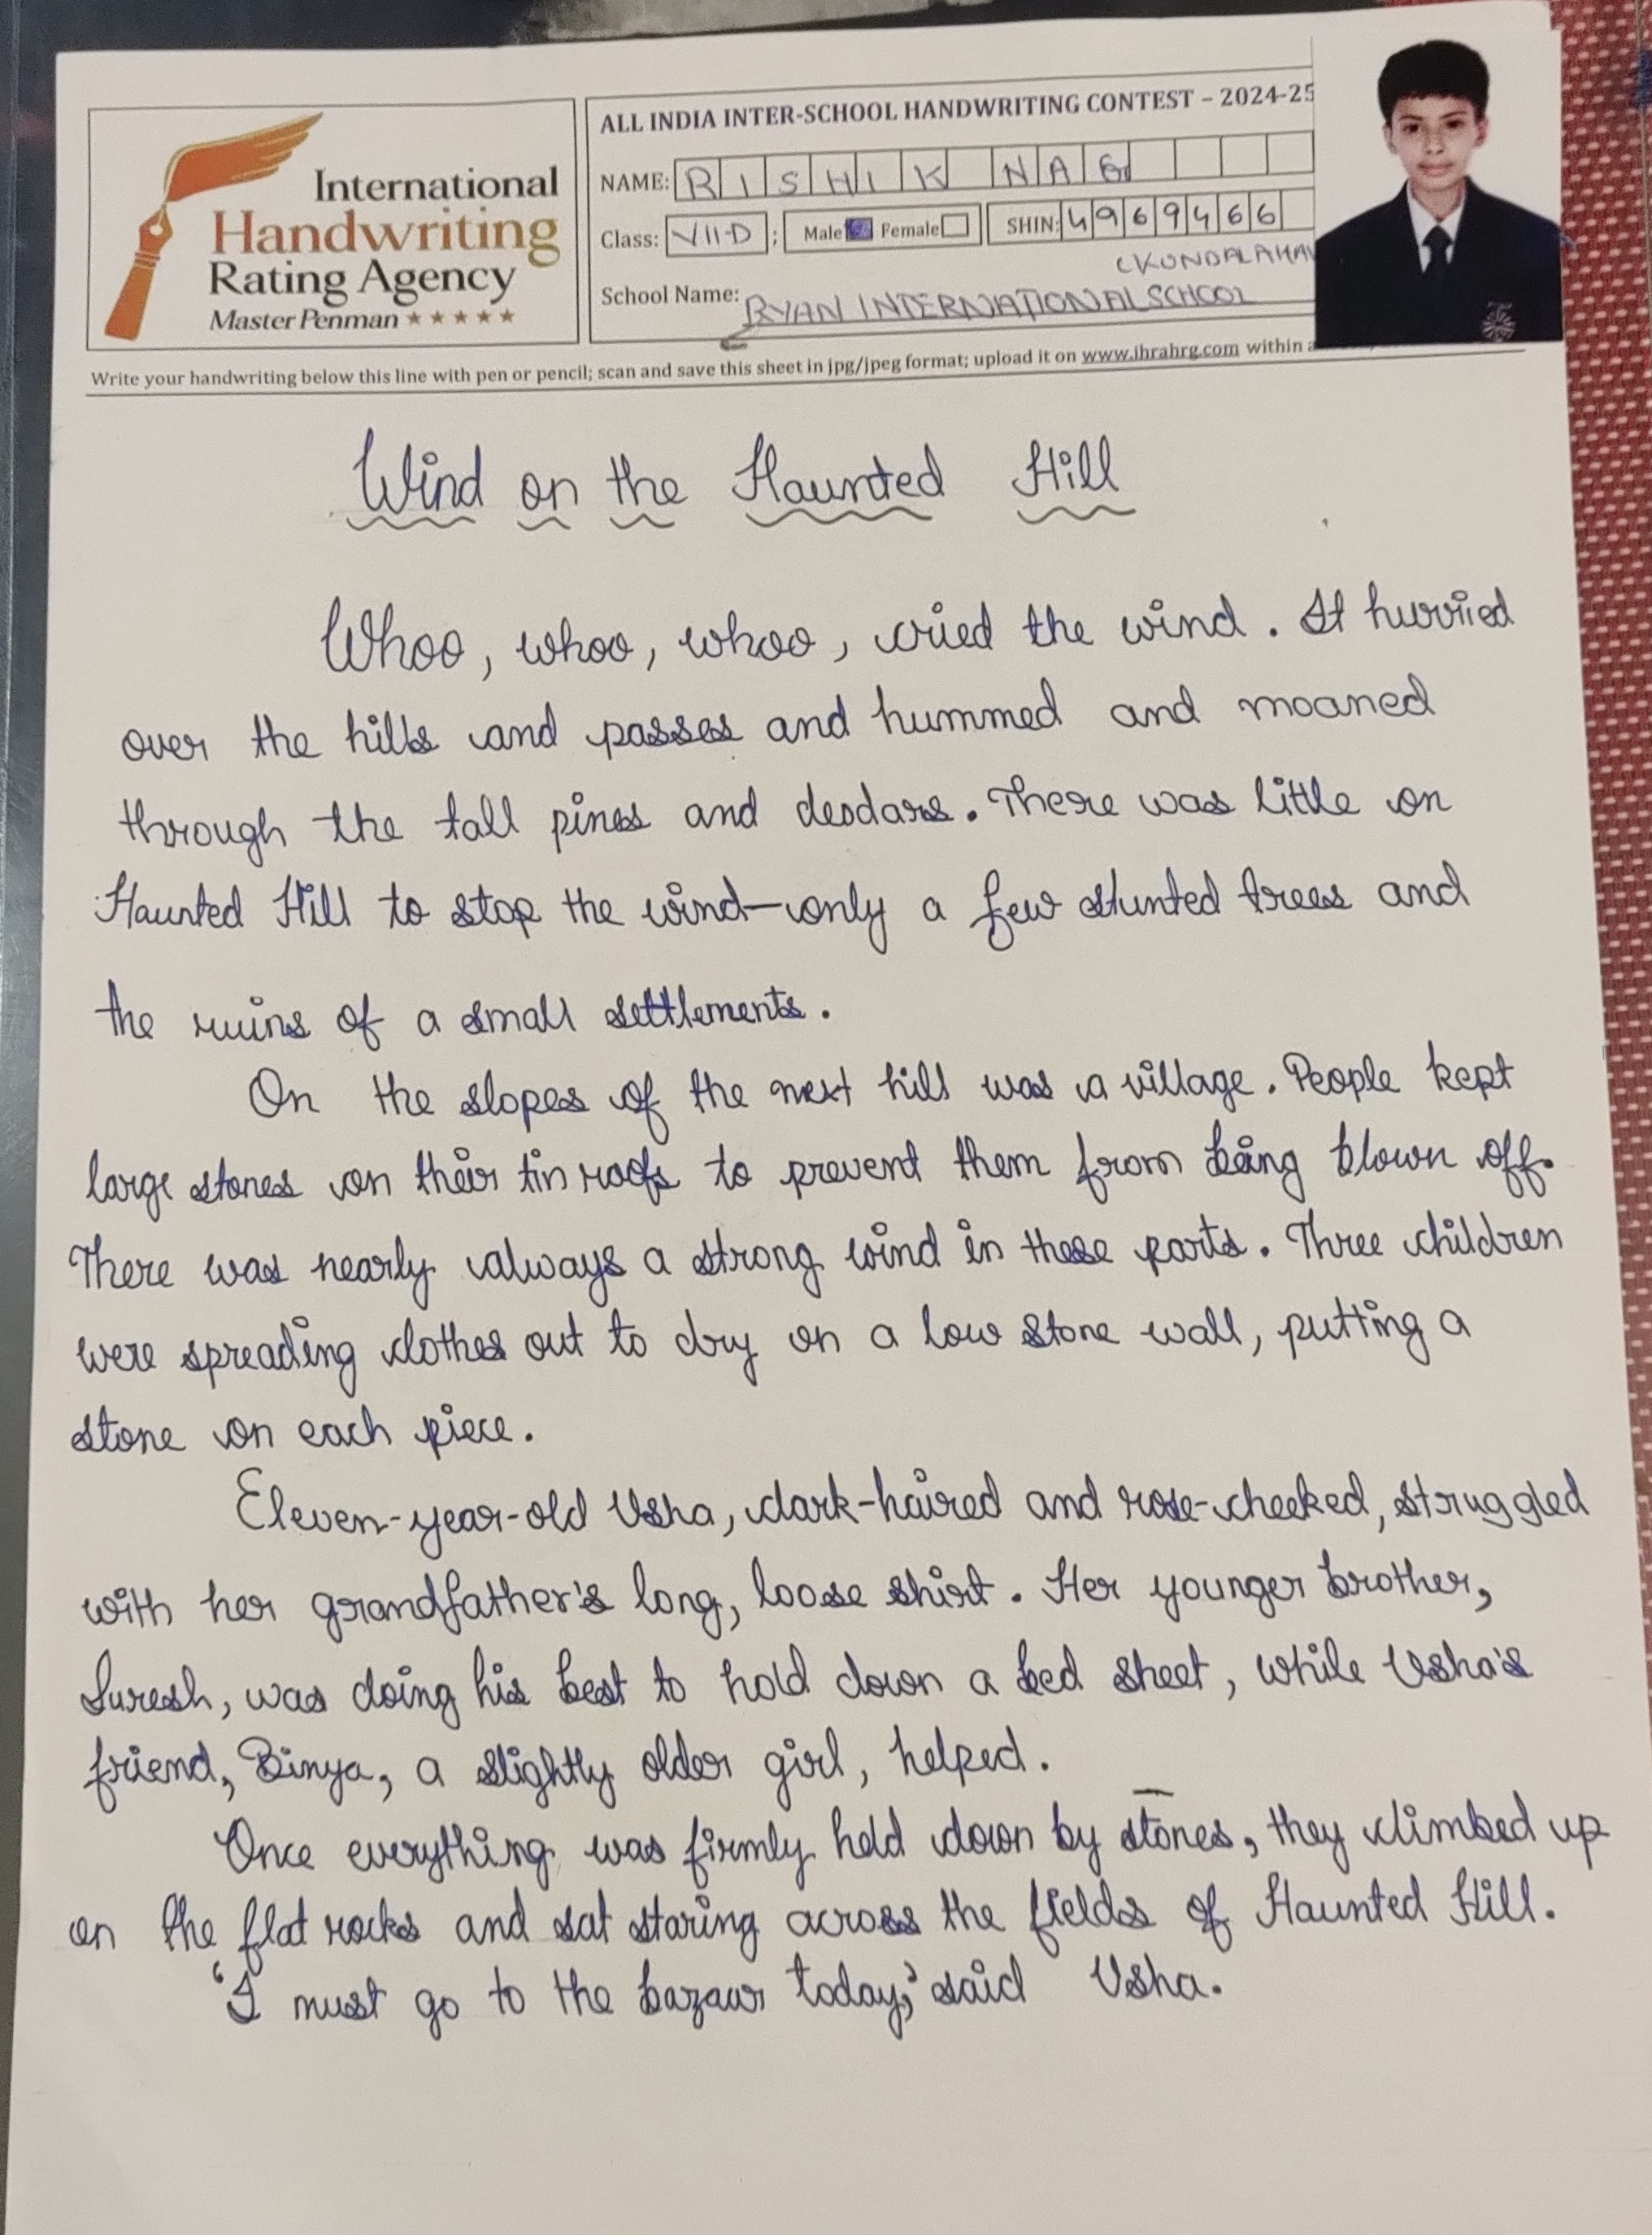 International
Handwriting
Rating Agency
Master Penman ★★★★★
ALL INDIA INTER-SCHOOL HANDWRITING CONTEST – 2024-25
NAME: RISHIK NAG
Class: VII-D ; Male Female SHIN: 4969466
(KUNDALAHA
School Name: RYAN INTERNATIONAL SCHOOL
Write your handwriting below this line with pen or pencil; scan and save this sheet in jpg/jpeg format; upload it on www.ihrahrg.com within
Wind on the Haunted Hill
Whoo, whoo, whoo, cried the wind. It hurried
over the hills and passes and hummed and moaned
through the tall pines and deodars. There was little on
Haunted Hill to stop the wind—only a few stunted trees and
the ruins of a small settlements.
On the slopes of the next hill was a village. People kept
large stones on their tin roofs to prevent them from being blown off.
There was nearly always a strong wind in these parts. Three children
were spreading clothes out to dry on a low stone wall, putting a
stone on each piece.
Eleven-year-old Usha, dark-haired and rose-cheeked, struggled
with her grandfather's long, loose shirt. Her younger brother,
Suresh, was doing his best to hold down a bed sheet, while Usha's
friend, Binya, a slightly older girl, helped.
Once everything was firmly held down by stones, they climbed up
on the flat rocks and sat staring across the fields of Haunted Hill.
‘I must go to the bazaar today,’ said Usha.